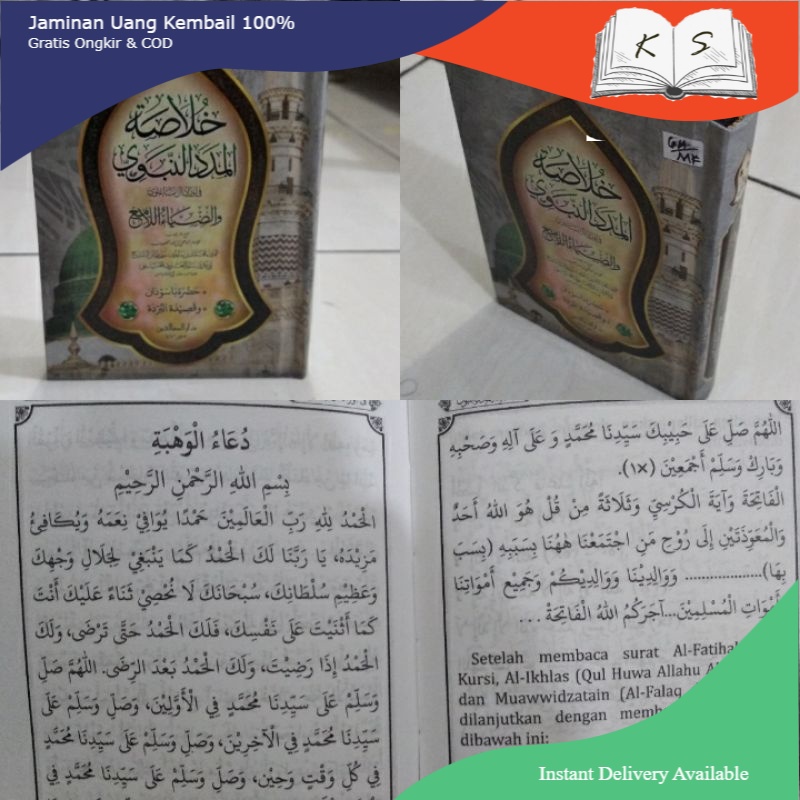 Jaminan Uang Kembail 100%
Gratis Ongkir & COD
K S
خُلَاصَة
المَدَد النَّبَوِيّ
والضِّيَاءُ اللَّامِع
حَضْرَة بَاسَوْدَان
وقَصِيْدَة البُرْدَة
خُلَاصَة
المَدَد النَّبَوِيّ
والضِّيَاءُ اللَّامِع
دُعَاءُ الْوَهْبَةِ
بِسْمِ اللهِ الرَّحْمٰنِ الرَّحِيْمِ
الْحَمْدُ لِلهِ رَبِّ الْعَالَمِيْنَ حَمْدًا يُوَافِيْ نِعَمَهُ وَيُكَافِئُ
مَزِيْدَهُ، يَا رَبَّنَا لَكَ الْحَمْدُ كَمَا يَنْبَغِيْ لِجَلَالِ وَجْهِكَ
وَعَظِيْمِ سُلْطَانِكَ، سُبْحَانَكَ لَا نُحْصِيْ ثَنَاءً عَلَيْكَ أَنْتَ
كَمَا أَثْنَيْتَ عَلَى نَفْسِكَ، فَلَكَ الْحَمْدُ حَتَّى تَرْضَى، وَلَكَ
الْحَمْدُ إِذَا رَضِيْتَ، وَلَكَ الْحَمْدُ بَعْدَ الرِّضَى. اللّٰهُمَّ صَلِّ
وَسَلِّمْ عَلَى سَيِّدِنَا مُحَمَّدٍ فِي الْأَوَّلِيْنَ، وَصَلِّ وَسَلِّمْ عَلَى
سَيِّدِنَا مُحَمَّدٍ فِي الْآخِرِيْنَ، وَصَلِّ وَسَلِّمْ عَلَى سَيِّدِنَا مُحَمَّدٍ
فِي كُلِّ وَقْتٍ وَحِيْنٍ، وَصَلِّ وَسَلِّمْ عَلَى سَيِّدِنَا مُحَمَّدٍ فِي
اللّٰهُمَّ صَلِّ عَلَى حَبِيْبِكَ سَيِّدِنَا مُحَمَّدٍ وَ عَلَى آلِهِ وَصَحْبِهِ
وَبَارِكْ وَسَلِّمْ أَجْمَعِيْنَ (١×).
الْفَاتِحَةَ وَآيَةَ الْكُرْسِيِّ وَثَلَاثَةً مِنْ قُلْ هُوَ اللهُ أَحَدٌ
وَالْمُعَوِّذَتَيْنِ إِلَى رُوْحِ مَنِ اجْتَمَعْنَا هٰهُنَا بِسَبَبِهِ (بِسَبَبِ
بِهَا)................... وَوَالِدِيْنَا وَوَالِدِيْكُمْ وَجَمِيْعِ أَمْوَاتِنَا
وَأَمْوَاتِ الْمُسْلِمِيْنَ...آجَرَكُمُ اللهُ الْفَاتِحَةْ . . .
Setelah membaca surat Al-Fatihah
Kursi, Al-Ikhlas (Qul Huwa Allahu
dan Muawwidzatain (Al-Falaq
dilanjutkan dengan
dibawah ini:
Instant Delivery Available